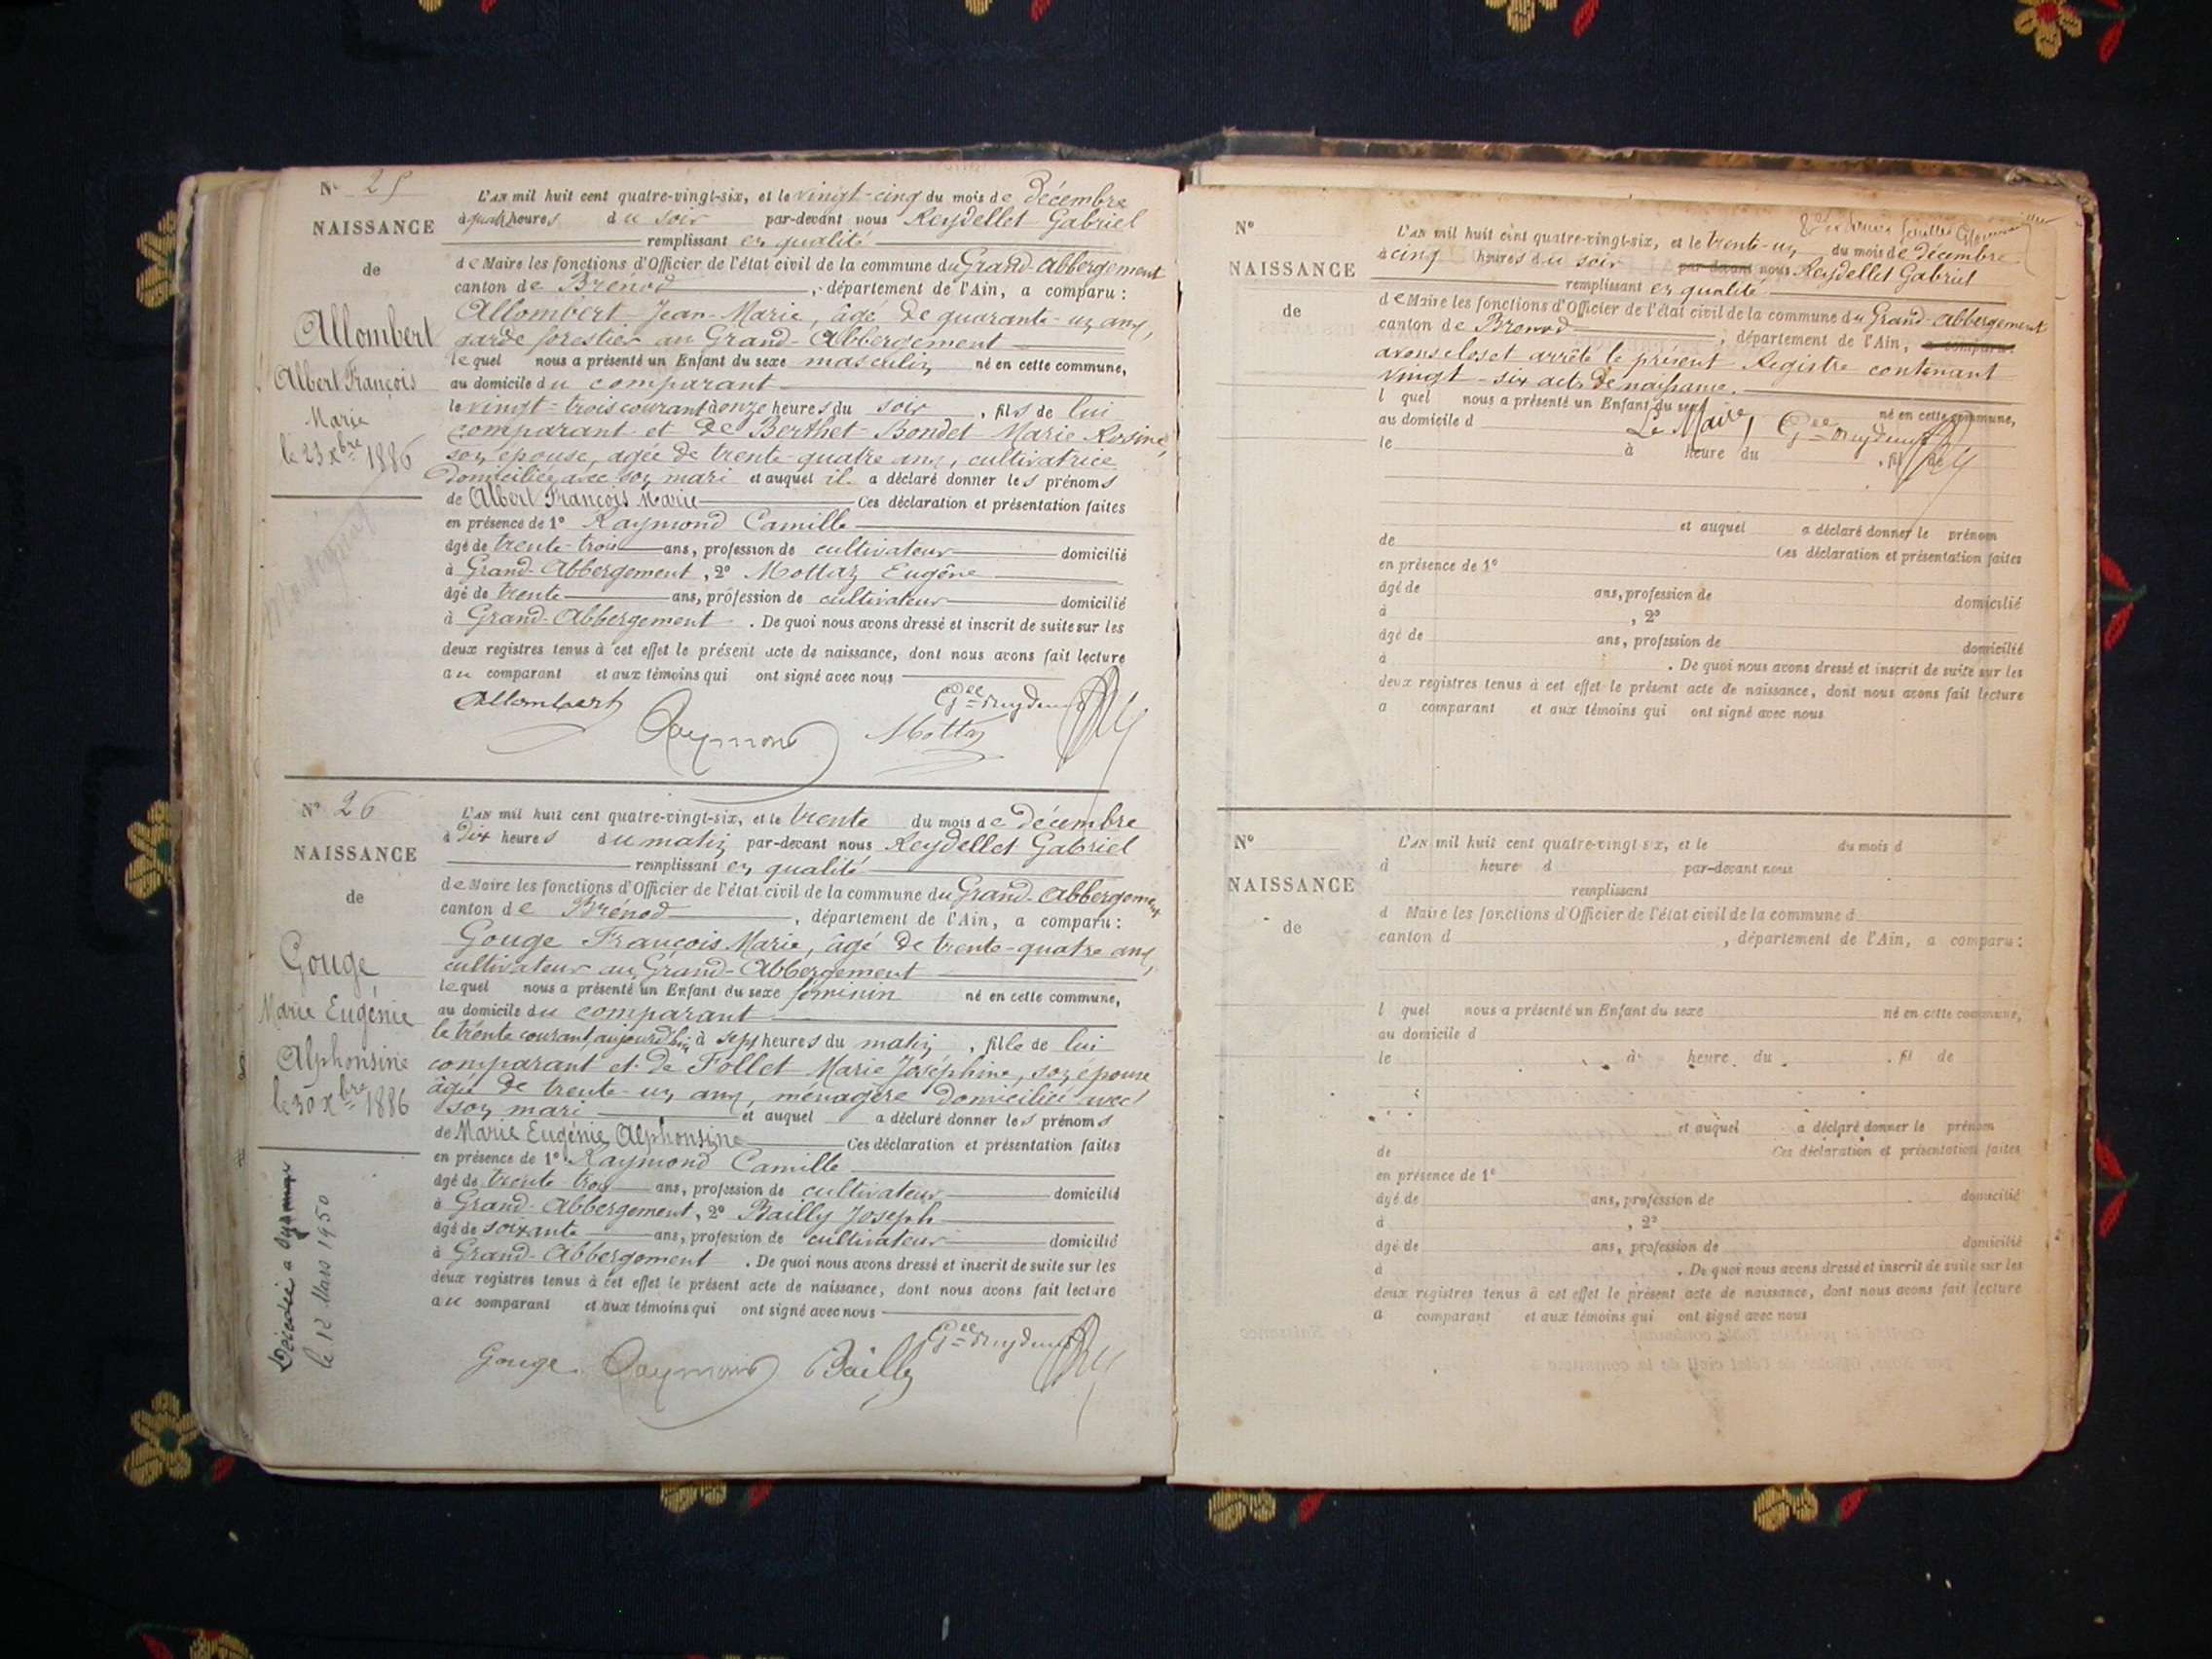 N° 25
NAISSANCE
de
Allombert
Albert François
Marie
le 23 xbre 1886
L'AN mil huit cent quatre-vingt-six, et le vingt-cinq du mois de Décembre
à quatre heures du soir par-devant nous Reydellet Gabriel
remplissant en qualité
de Maire les fonctions d'Officier de l'état civil de la commune du Grand-Abbergement
canton de Brénod, département de l'Ain, a comparu :
Allombert Jean-Marie, âgé de quarante-un ans,
garde forestier au Grand-Abbergement
lequel nous a présenté un Enfant du sexe masculin né en cette commune,
au domicile du comparant
le vingt-trois courant à onze heures du soir, fils de lui
comparant et de Berthet-Bondet Marie Rosine,
son épouse, agée de trente-quatre ans, cultivatrice
domiciliée avec son mari et auquel il a déclaré donner les prénoms
de Albert François Marie Ces déclaration et présentation faites
en présence de 1° Raymond Camille
âgé de trente-trois ans, profession de cultivateur domicilié
à Grand-Abbergement, 2° Mottaz Eugène
âgé de trente ans, profession de cultivateur domicilié
à Grand-Abbergement. De quoi nous avons dressé et inscrit de suite sur les
deux registres tenus à cet effet le présent acte de naissance, dont nous avons fait lecture
au comparant et aux témoins qui ont signé avec nous
Allombert Raymond Mottaz
N° 26
NAISSANCE
de
Gouge
Marie Eugénie
Alphonsine
le 30 xbre 1886
Décédée a
le 12 Mars 1950
L'AN mil huit cent quatre-vingt-six, et le trente du mois de Décembre
à Dix heures du matin par-devant nous Reydellet Gabriel
remplissant en qualité
de Maire les fonctions d'Officier de l'état civil de la commune du Grand-Abbergement
canton de Brénod, département de l'Ain, a comparu :
Gouge François Marie, âgé de trente-quatre ans,
cultivateur au Grand-Abbergement
lequel nous a présenté un Enfant du sexe féminin né en cette commune,
au domicile du comparant
le trente courant, aujourd'hui à sept heures du matin, fille de lui
comparant et de Follet Marie Joséphine, son épouse
âgée de trente-un ans, ménagère domiciliée avec
son mari et auquel a déclaré donner les prénoms
de Marie Eugénie Alphonsine Ces déclaration et présentation faites
en présence de 1° Raymond Camille
âgé de trente-trois ans, profession de cultivateur domicilié
à Grand-Abbergement, 2° Bailly Joseph
âgé de soixante ans, profession de cultivateur domicilié
à Grand-Abbergement. De quoi nous avons dressé et inscrit de suite sur les
deux registres tenus à cet effet le présent acte de naissance, dont nous avons fait lecture
au comparant et aux témoins qui ont signé avec nous
Gouge Raymond Bailly
N°
NAISSANCE
de
L'AN mil huit cent quatre-vingt-six, et le trente-un du mois de Décembre
à cinq heures du soir par-devant nous Reydellet Gabriel
remplissant en qualité
de Maire les fonctions d'Officier de l'état civil de la commune du Grand-Abbergement
canton de Brenod, département de l'Ain, a comparu :
avons clos et arrêté le présent Registre contenant
vingt-six actes de naissance.
l quel nous a présenté un Enfant du sexe né en cette commune,
au domicile d Le Maire,
le à heure du , fil de
et auquel a déclaré donner le prénom
de Ces déclaration et présentation faites
en présence de 1°
âgé de ans, profession de domicilié
à , 2°
âgé de ans, profession de domicilié
à . De quoi nous avons dressé et inscrit de suite sur les
deux registres tenus à cet effet le présent acte de naissance, dont nous avons fait lecture
a comparant et aux témoins qui ont signé avec nous
N°
NAISSANCE
de
L'AN mil huit cent quatre-vingt six, et le du mois d
à heure d par-devant nous
remplissant
d Maire les fonctions d'Officier de l'état civil de la commune d
canton d , département de l'Ain, a comparu :
l quel nous a présenté un Enfant du sexe né en cette commune,
au domicile d
le à heure du . fil de
et auquel a déclaré donner le prénom
de Ces déclaration et présentation faites
en présence de 1°
âgé de ans, profession de domicilié
à , 2°
âgé de ans, profession de domicilié
à . De quoi nous avons dressé et inscrit de suite sur les
deux registres tenus à cet effet le présent acte de naissance, dont nous avons fait lecture
a comparant et aux témoins qui ont signé avec nous